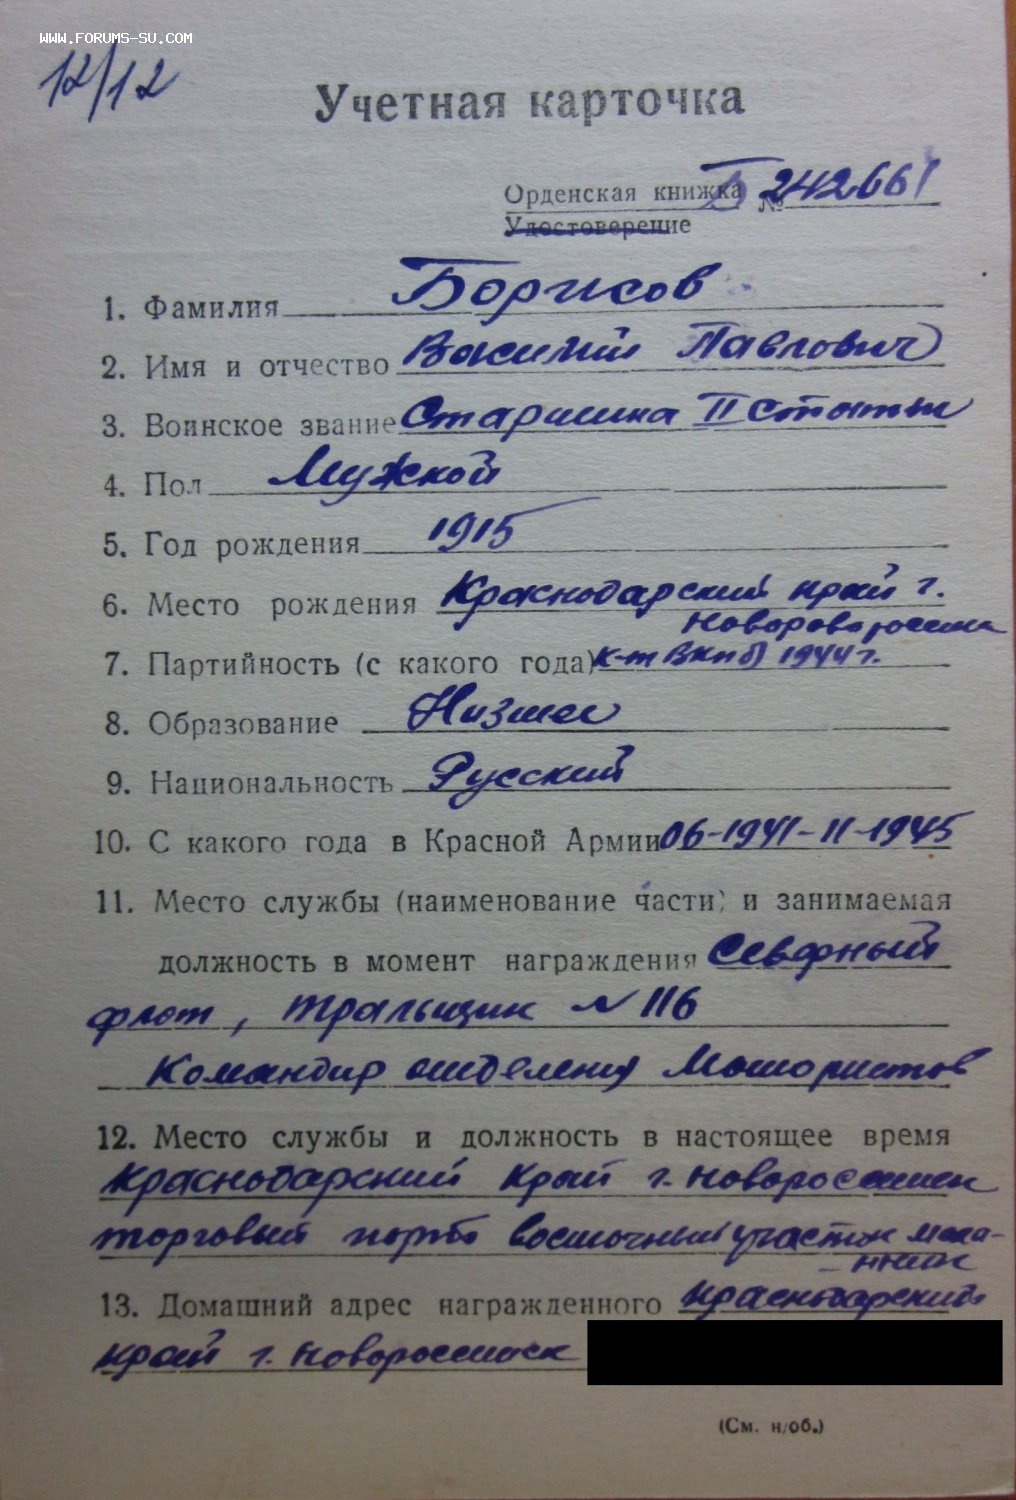 WWW.FORUMS-SU.COM
12/12
Учетная карточка
Орденская книжка Б № 242661
Удостоверение
1. Фамилия Борисов
2. Имя и отчество Василий Павлович
3. Воинское звание Старшина II статьи
4. Пол Мужской
5. Год рождения 1915
6. Место рождения Краснодарский край г.
7. Партийность (с какого года) к-т ВКПб) 1944 г.
8. Образование Низшее
9. Национальность Русский
10. С какого года в Красной Армии 06-1941-11-1945
11. Место службы (наименование части) и занимаемая
должность в момент награждения Северный
флот, тральщик N 116
Командир отделения Мотористов
12. Место службы и должность в настоящее время
Краснодарский край г. Новороссийск
торговый порт восточный участок меха-
ник
13. Домашний адрес награжденного Краснодарский
край г. Новороссийск
(См. н/об.)